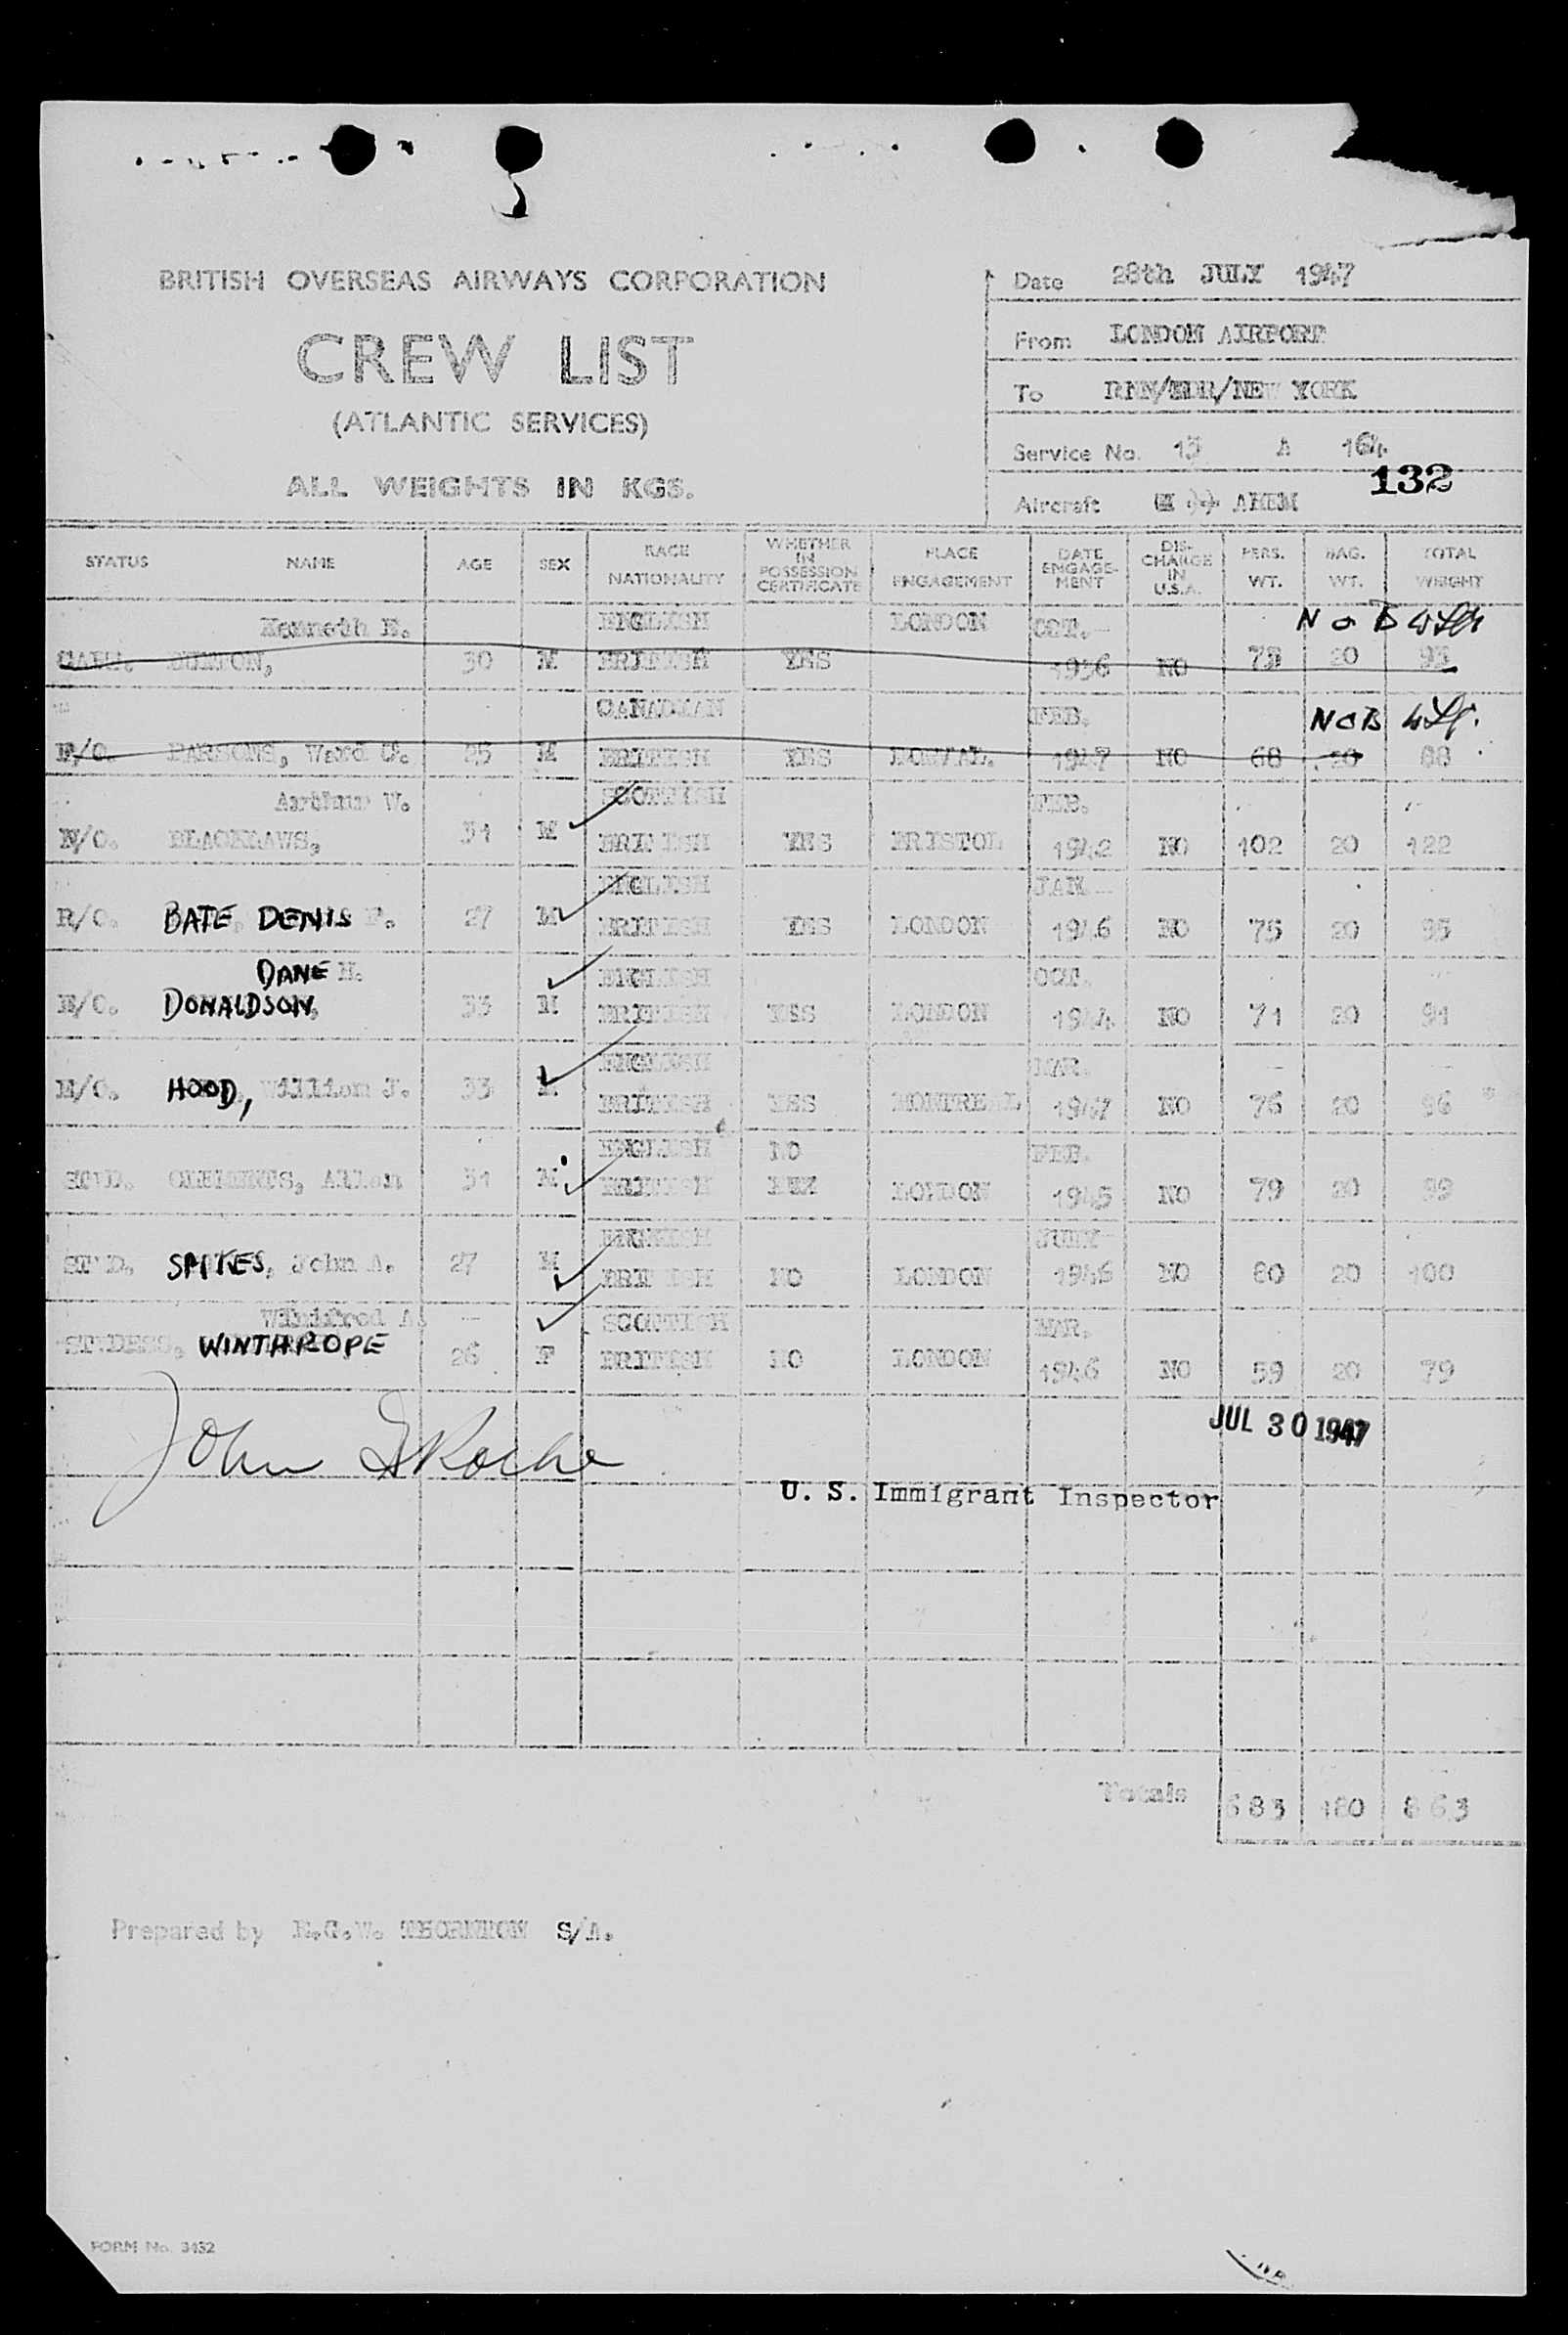 BRITISH OVERSEAS AIRWAYS CORPORATION
CREW LIST
(ATLANTIC SERVICES)
ALL WEIGHTS IN KGS.
Date 28th JULY 1947
From LONDON AIRPORT
To RNN/NEW YORK
Service No. 13 A 164
132
Aircraft AHEM
STATUS NAME AGE SEX RACE NATIONALITY WHETHER IN POSSESSION CERTIFICATE PLACE ENGAGEMENT DATE ENGAGE-MENT DIS-CHARGE IN U.S.A. PERS. WT. BAG. WT. TOTAL WEIGHT
Kenneth E. ENGLISH LONDON OCT. N o B
30 M BRITISH YES 1936 NO 20
CANADIAN FEB. N o B
F/O. PARSONS, Ward 25 M BRITISH YES 1947 NO 68 20 88
Arthur W. SCOTTISH FEB.
N/O. BLACKLAWS, 31 M BRITISH YES BRISTOL 1942 NO 102 20 122
ENGLISH JAN
R/O. BATE, DENIS F. 27 M BRITISH YES LONDON 1946 NO 75 20 95
DANE H. ENGLISH OCT.
E/O. DONALDSON, 33 M BRITISH YES LONDON 1944 NO 71 20 91
ENGLISH MAR.
E/O. HOOD, William J. 33 M BRITISH YES MONTREAL 1947 NO 76 20 96
ENGLISH NO FEB.
STWD. CLEMENTS, Allan 31 M BRITISH LONDON 1945 NO 79 20 99
ENGLISH JULY
STWD. SPIKES, John A. 27 M BRITISH NO LONDON 1946 NO 80 20 100
Winifred A. SCOTTISH MAR.
STWDESS, WINTHROPE 26 F BRITISH NO LONDON 1946 NO 59 20 79
JUL 30 1947
John Roche
U. S. Immigrant Inspector
Totals 683 180 863
Prepared by E.G.W. THORNTON S/A.
FORM No. 3432